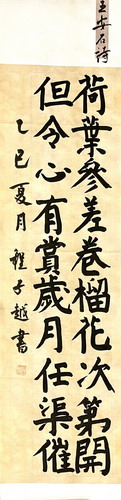 王安石诗
荷葉參差卷榴花次第開
但令心有賞歲月任渠催
乙巳夏月程千越書